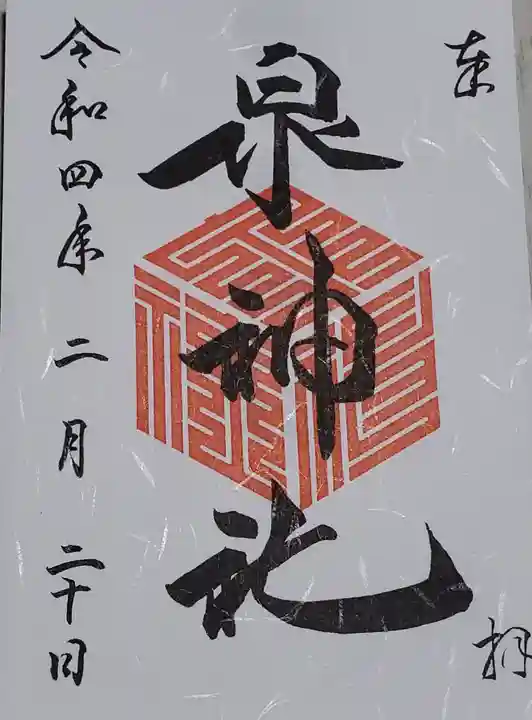 奉
拝
泉神社
令和四年
二月
二十日